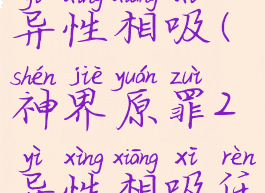 异性相吸(
shén jiè yuán zuì
神界原罪2
yì xìng xiāng xī rèn
异性相吸